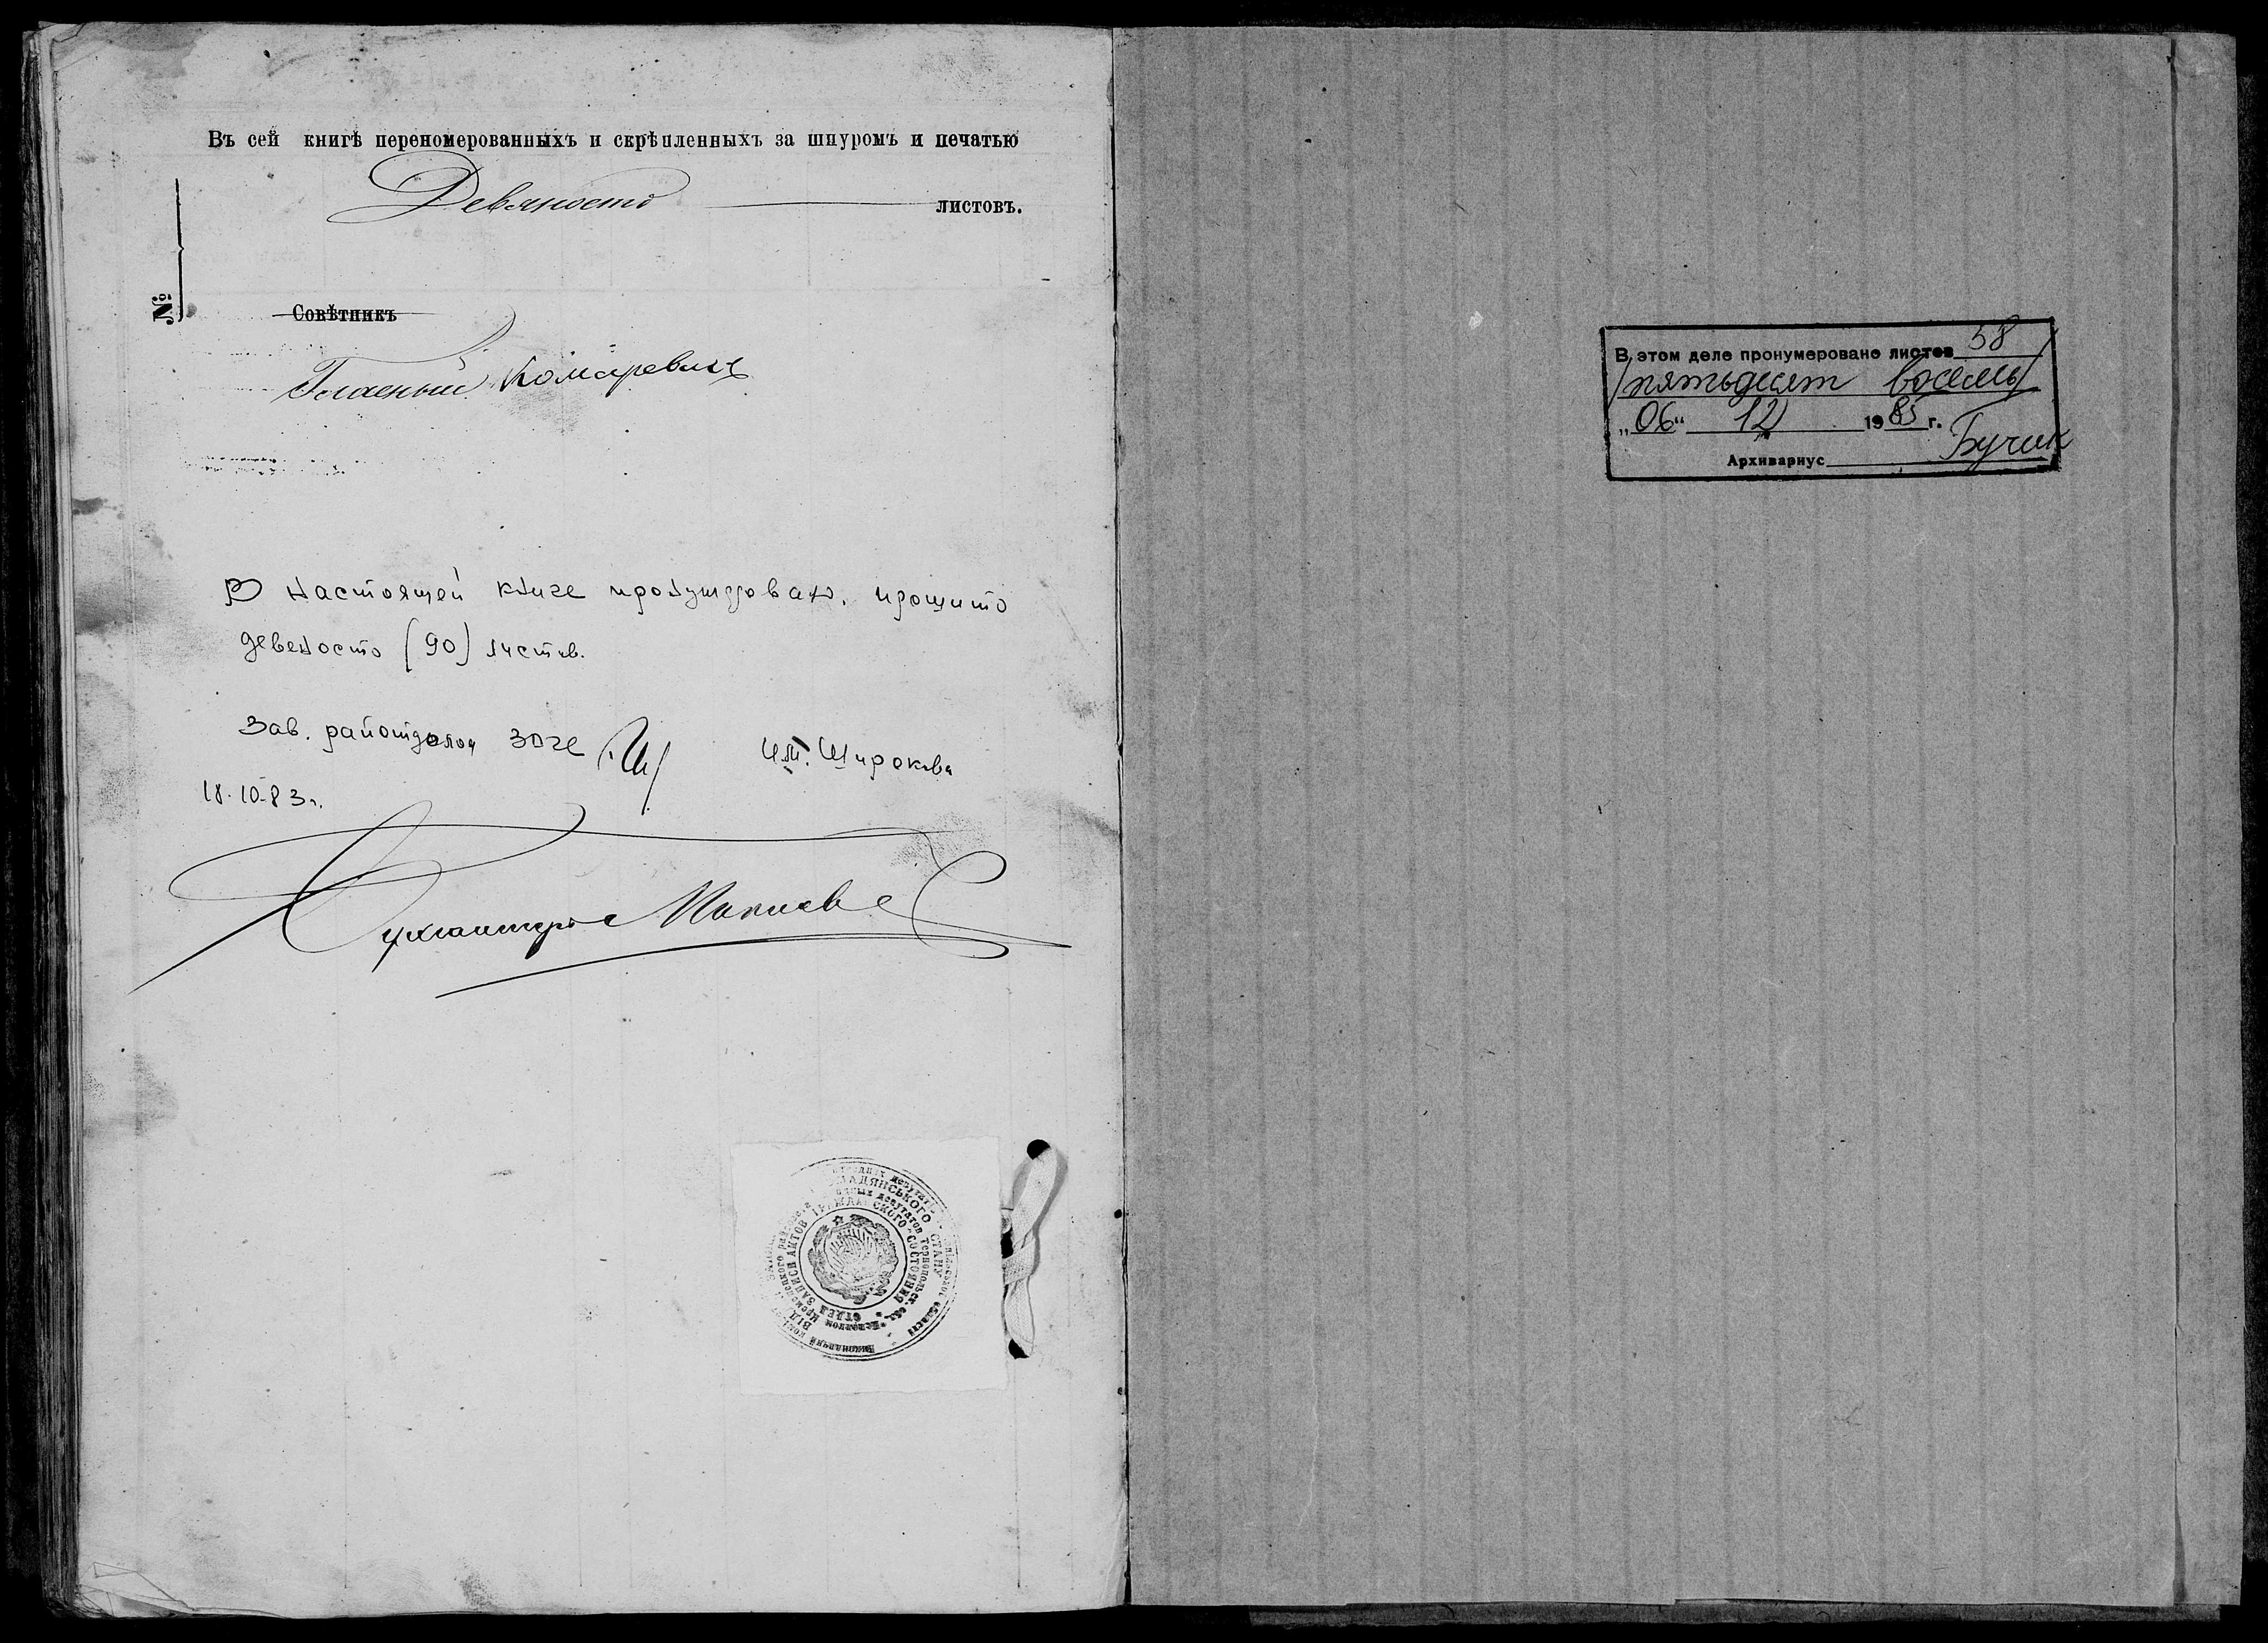 Въ сей книгѣ переномерованныхъ и скрѣпленныхъ за шнуромъ и печатью
Девяносто листовъ.
№
Совѣтникъ
Гласный Комаревичъ
В настоящей книге пронумеровано, прошито
девеносто (90) листов.
Зав. райотделом ЗАГС И.М. Широкова
18.10.83г.
Бухгалтеръ
ОТДЕЛ ЗАПИСИ АКТОВ ГРАЖДАНСКОГО СОСТОЯНИЯ
В этом деле пронумеровано листов 58
/пятьдесят восемь/
„06“ 12 1985 г.
Архивариус Бучик